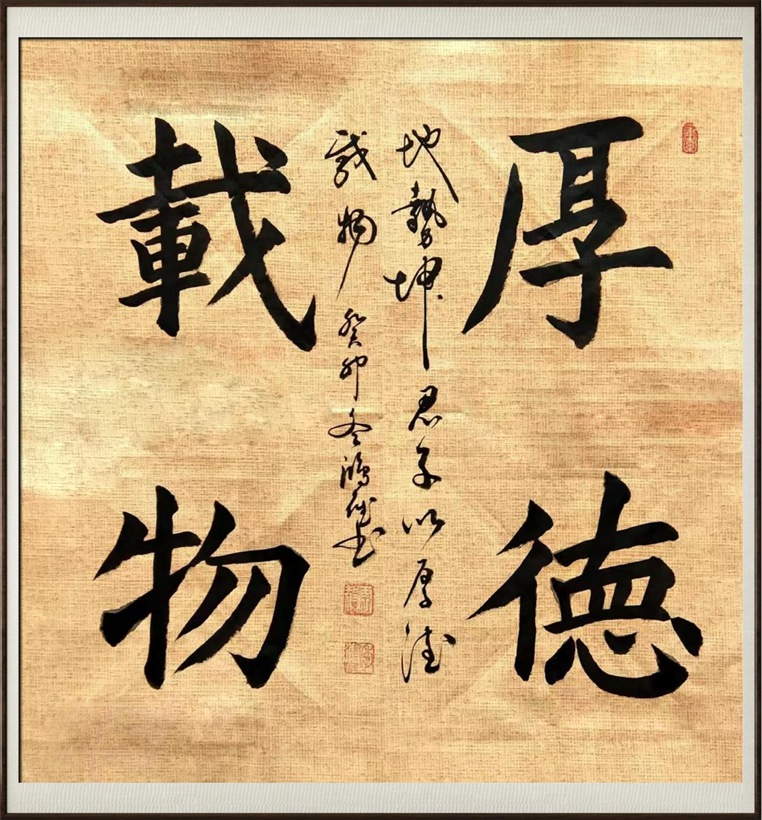 厚德
地勢坤君子以厚德
載物癸卯冬鴻書
載物